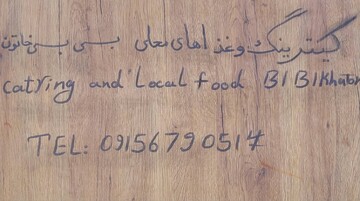 کیترینگ و غذاهای محلی بی بی خاتون
catring and Local food BIBIkhaton
TEL: 09156790517